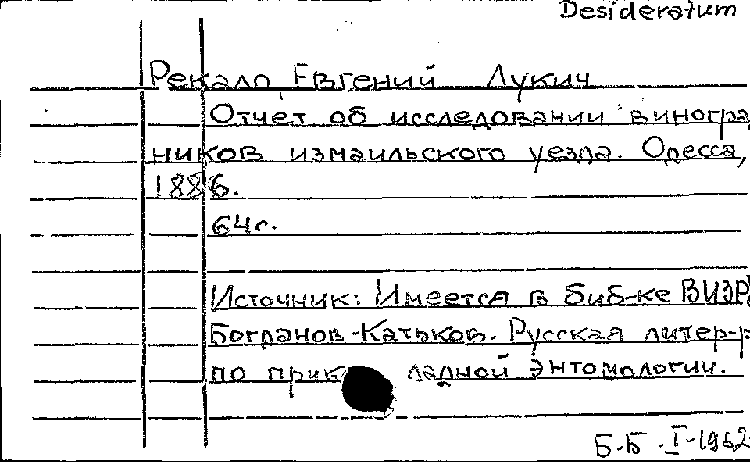 Desideratum
Рекало Евгений Лукич
Отчет об исследовании виногра
ников измаильского уезда. Одесса,
1886.
64с.
Источник: Имеется в биб-ке ВИЗР
Богданов-Катьков. Русская литер-р
по прикладной энтомологии.
Б-Б. I-1952